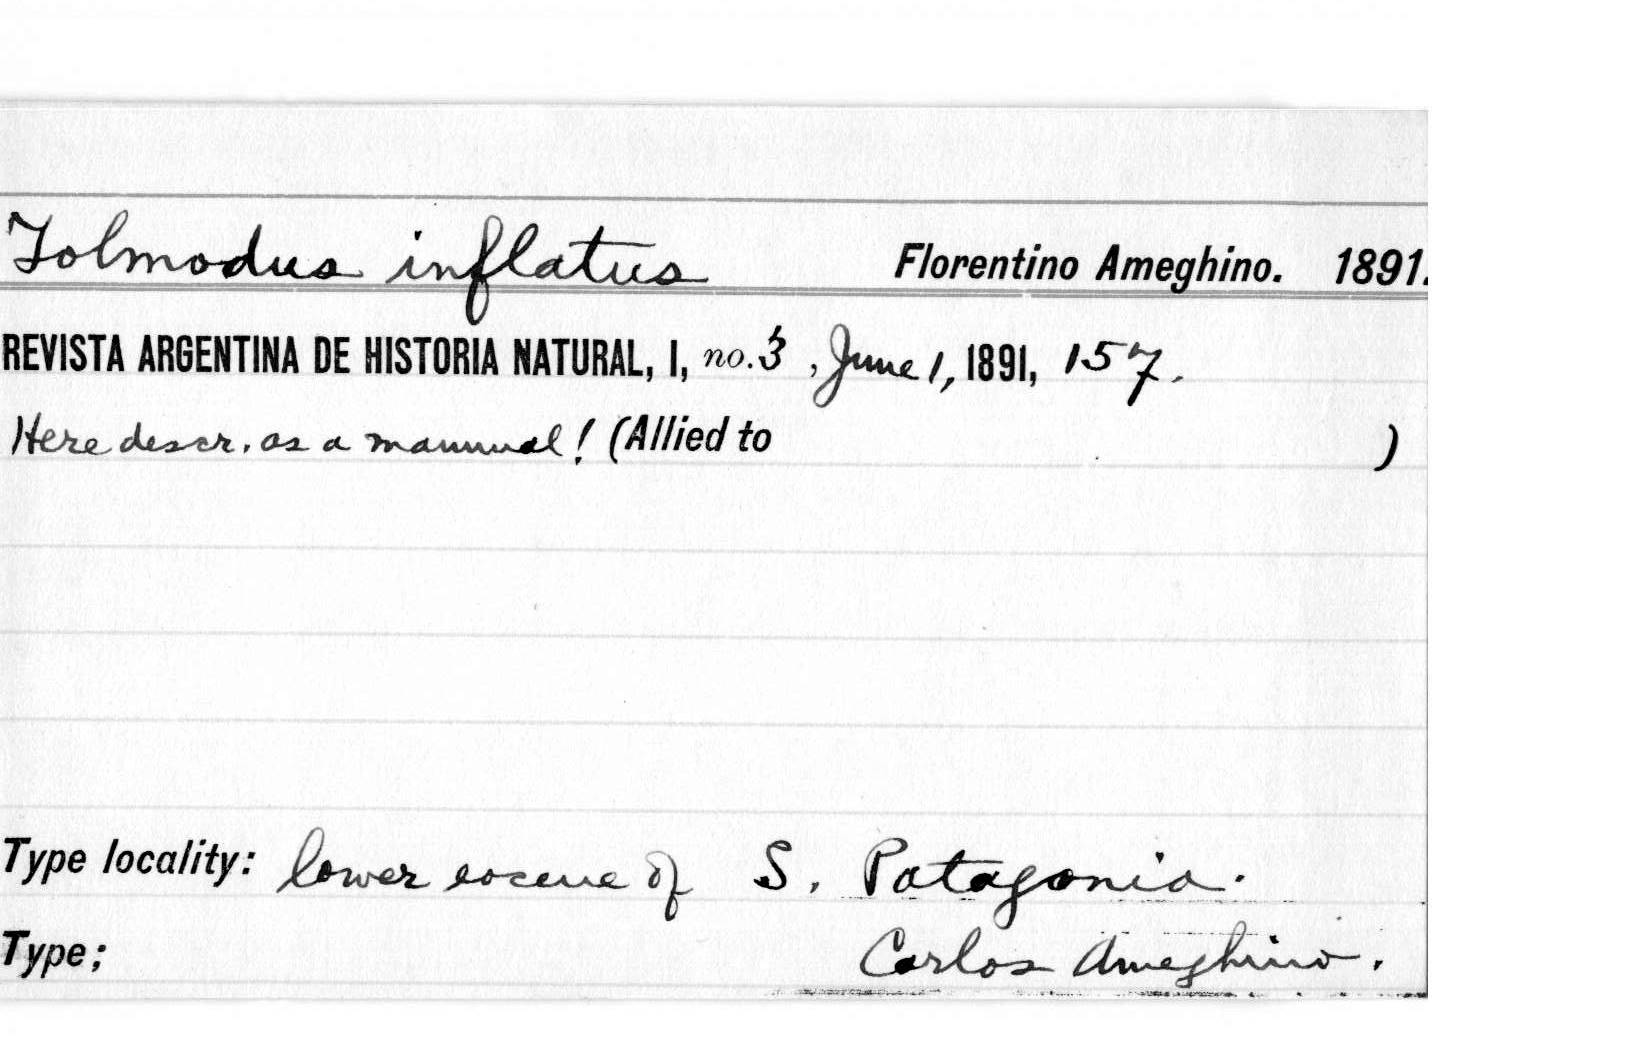 Tolmodus inflatus Florentino Ameghino. 1891.
REVISTA ARGENTINA DE HISTORIA NATURAL, I, no. 3, June 1, 1891, 157.
Here descr. as a mammal! (Allied to )
Type locality: lower eocene of S. Patagonia.
Type: Carlos Ameghino.